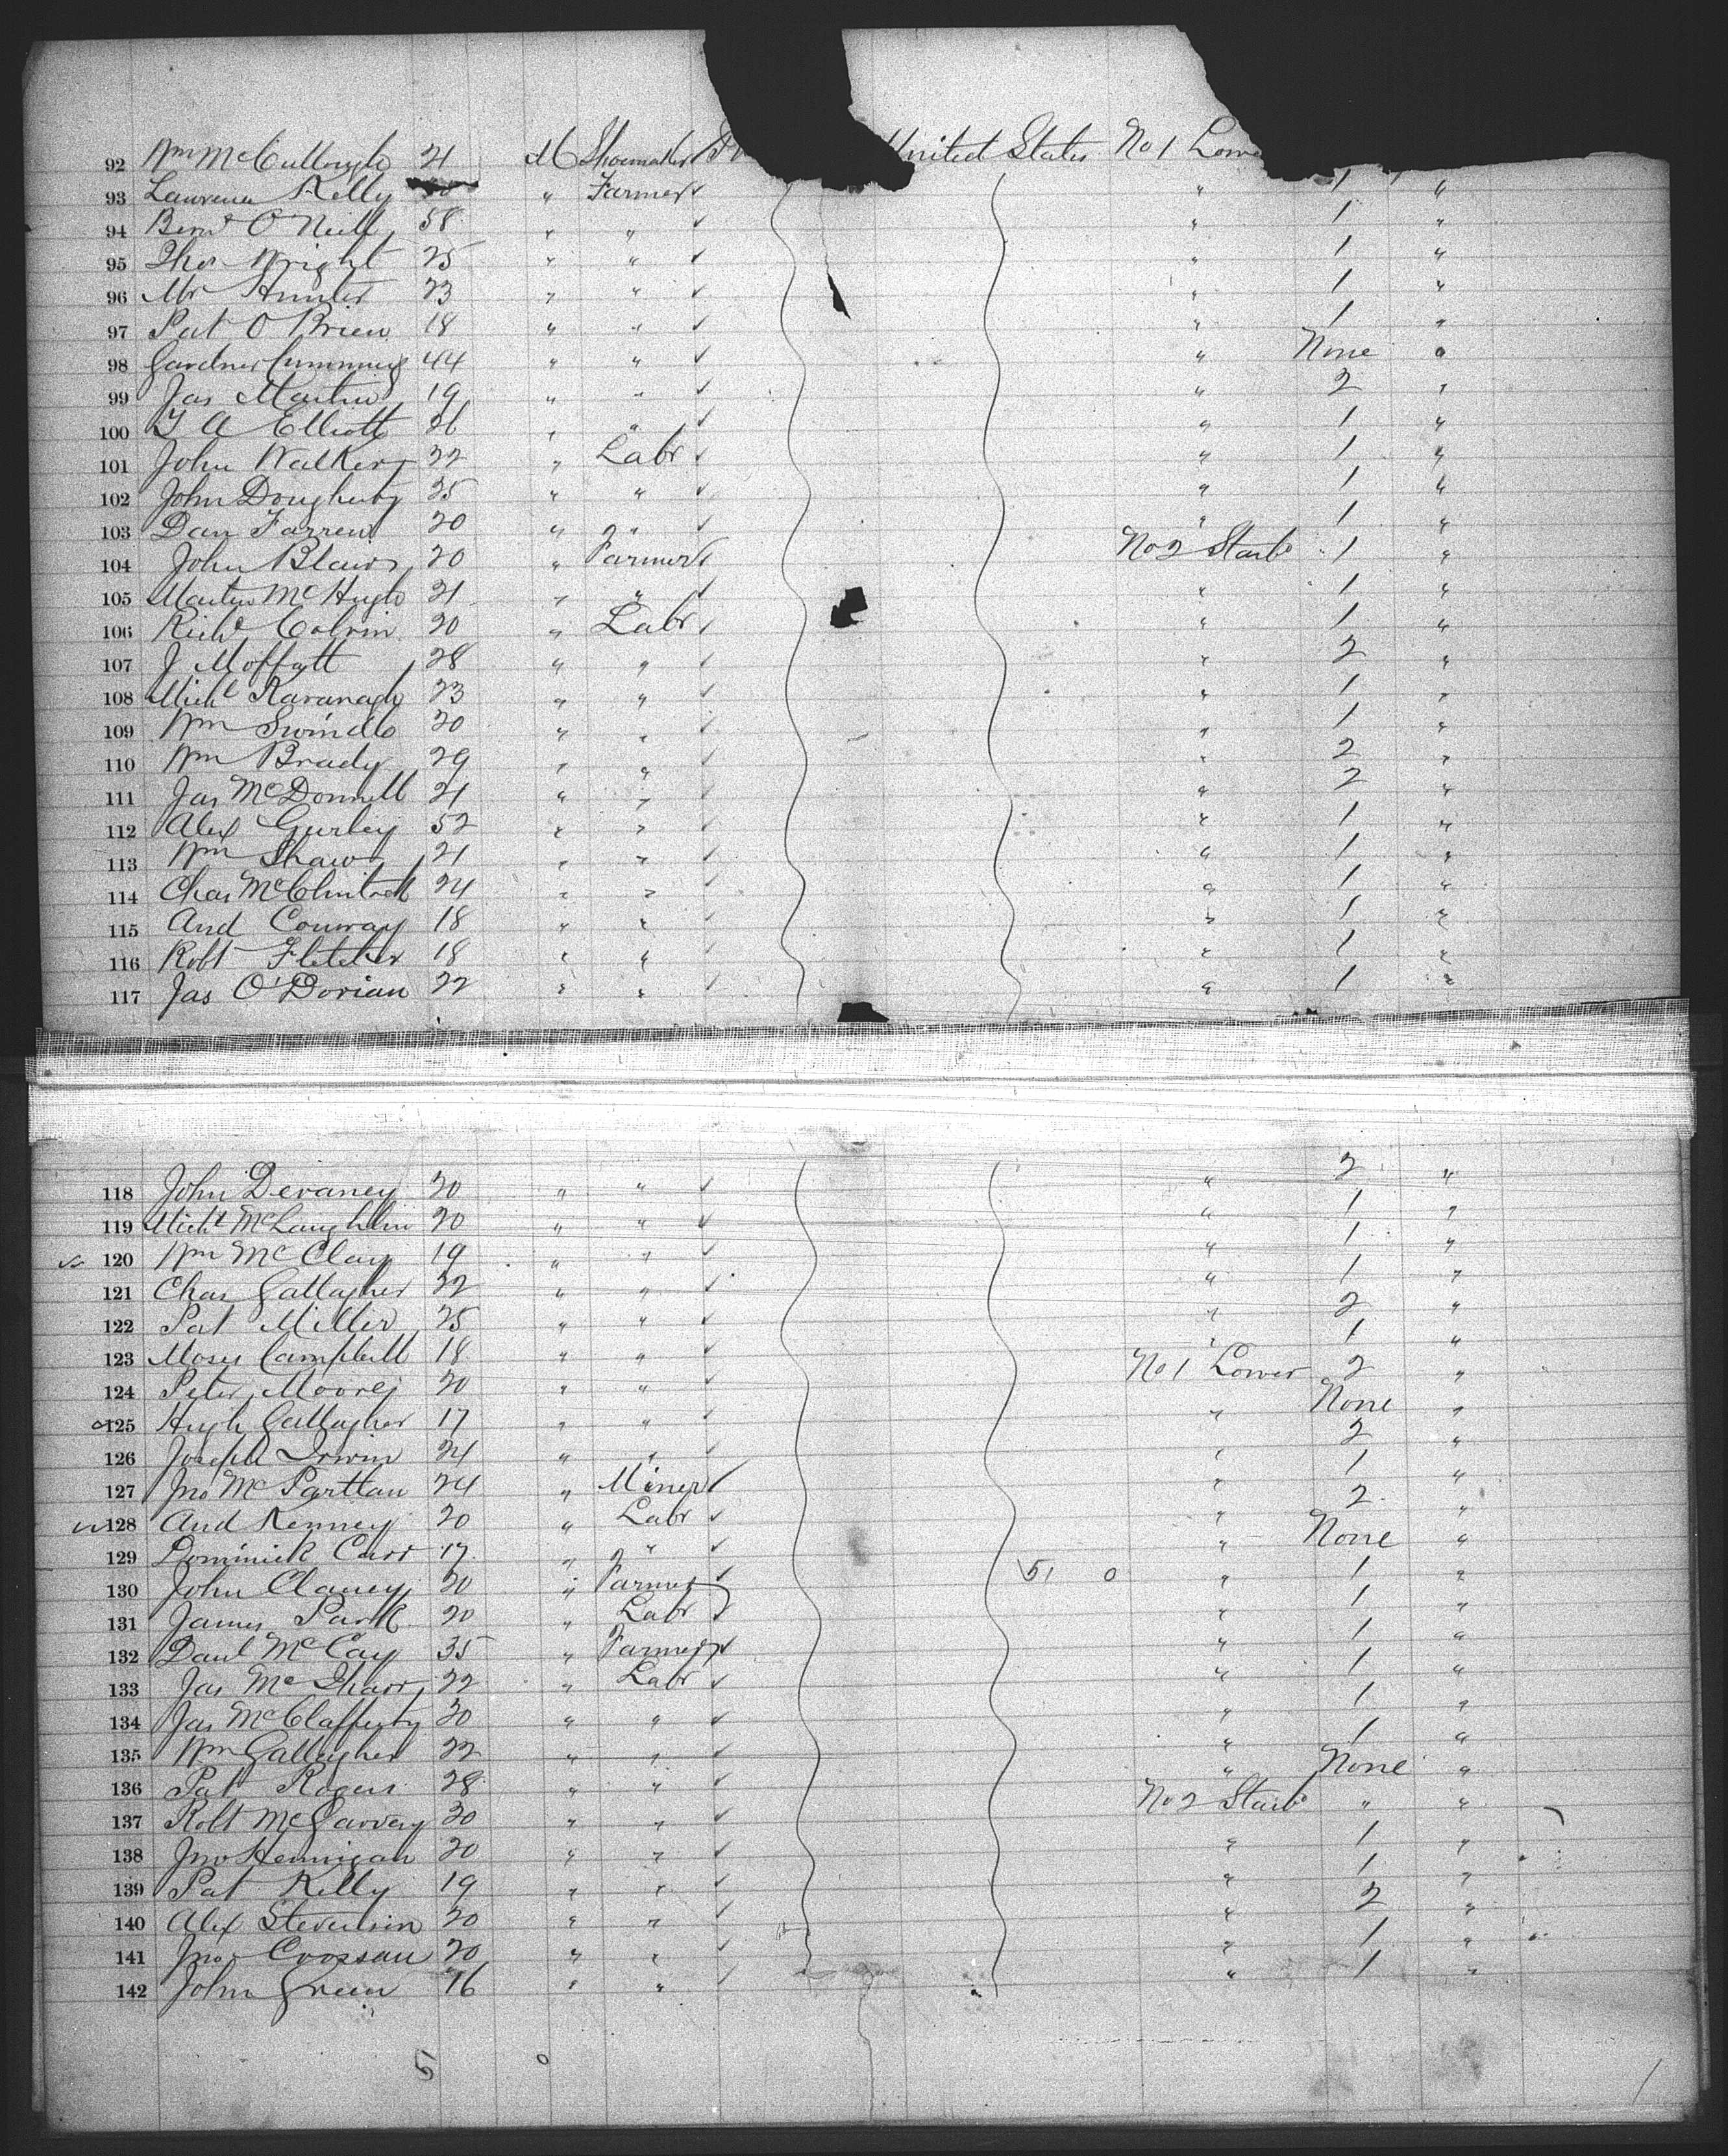 92 Wm McCullough 21 M Shoemaker United States No 1 Lowe
93 Lawrence Kelly " Farmer " 1 "
94 Bernd O'Neill 58 " " " 1 "
95 Thos Wright 25 " " " 1 "
96 Mr Hunter 23 " " " 1 "
97 Pat O'Brien 18 " " " 1 "
98 Gardner Cumming 44 " " " None "
99 Jas Martin 19 " " " 2 "
100 T A Elliott 26 " " " 1 "
101 John Walker 22 " Labr " 1 "
102 John Dougherty 25 " " " 1 "
103 Dan Farren 20 " " " 1 "
104 John Blair 20 " Farmer No 2 Starbd 1 "
105 Martin McHugh 21 " " " 1 "
106 Richd Colvin 20 " Labr " 1 "
107 J Moffatt 28 " " " 2 "
108 Michl Kavanagh 23 " " " 1 "
109 Wm Swindle 20 " " " 1 "
110 Wm Brady 29 " " " 2 "
111 Jas McDonnell 21 " " " 2 "
112 Alex Gurley 52 " " " 1 "
113 Wm Shaw 21 " " " 1 "
114 Chas McClintock 24 " " " 1 "
115 And Conway 18 " " " 1 "
116 Robt Fletcher 18 " " " 1 "
117 Jas O'Dorian 22 " " " 1 "
118 John Devaney 20 " " " 2 "
119 Michl McLaughlin 20 " " " 1 "
120 Wm McClay 19 " " " 1 "
121 Chas Gallagher 22 " " " 1 "
122 Pat Miller 25 " " " 2 "
123 Moses Campbell 18 " " " 1 "
124 Peter Moore 20 " " No 1 Lower 2 "
125 Hugh Gallagher 17 " " " None "
126 Joseph Irwin 24 " " " 2 "
127 Jno McPartlan 24 " Miner " 1 "
128 And Kenney 20 " Labr " 2 "
129 Dominick Carr 17 " " " None "
130 John Clancy 20 " Farmer 51 0 " 1 "
131 James Park 20 " Labr " 1 "
132 Danl McCay 35 " Farmer " 1 "
133 Jas McGharr 22 " Labr " 1 "
134 Jas McClafferty 30 " " " 1 "
135 Wm Gallagher 22 " " " 1 "
136 Pat Rogers 28 " " " None "
137 Robt McGarvey 30 " " No 2 Starbd " "
138 Jno Hennigan 20 " " " 1 "
139 Pat Kelly 19 " " " 1 "
140 Alex Stevenson 20 " " " 2 "
141 Jno Crossan 20 " " " 1 "
142 John Green 16 " " " 1 "
5 0
1